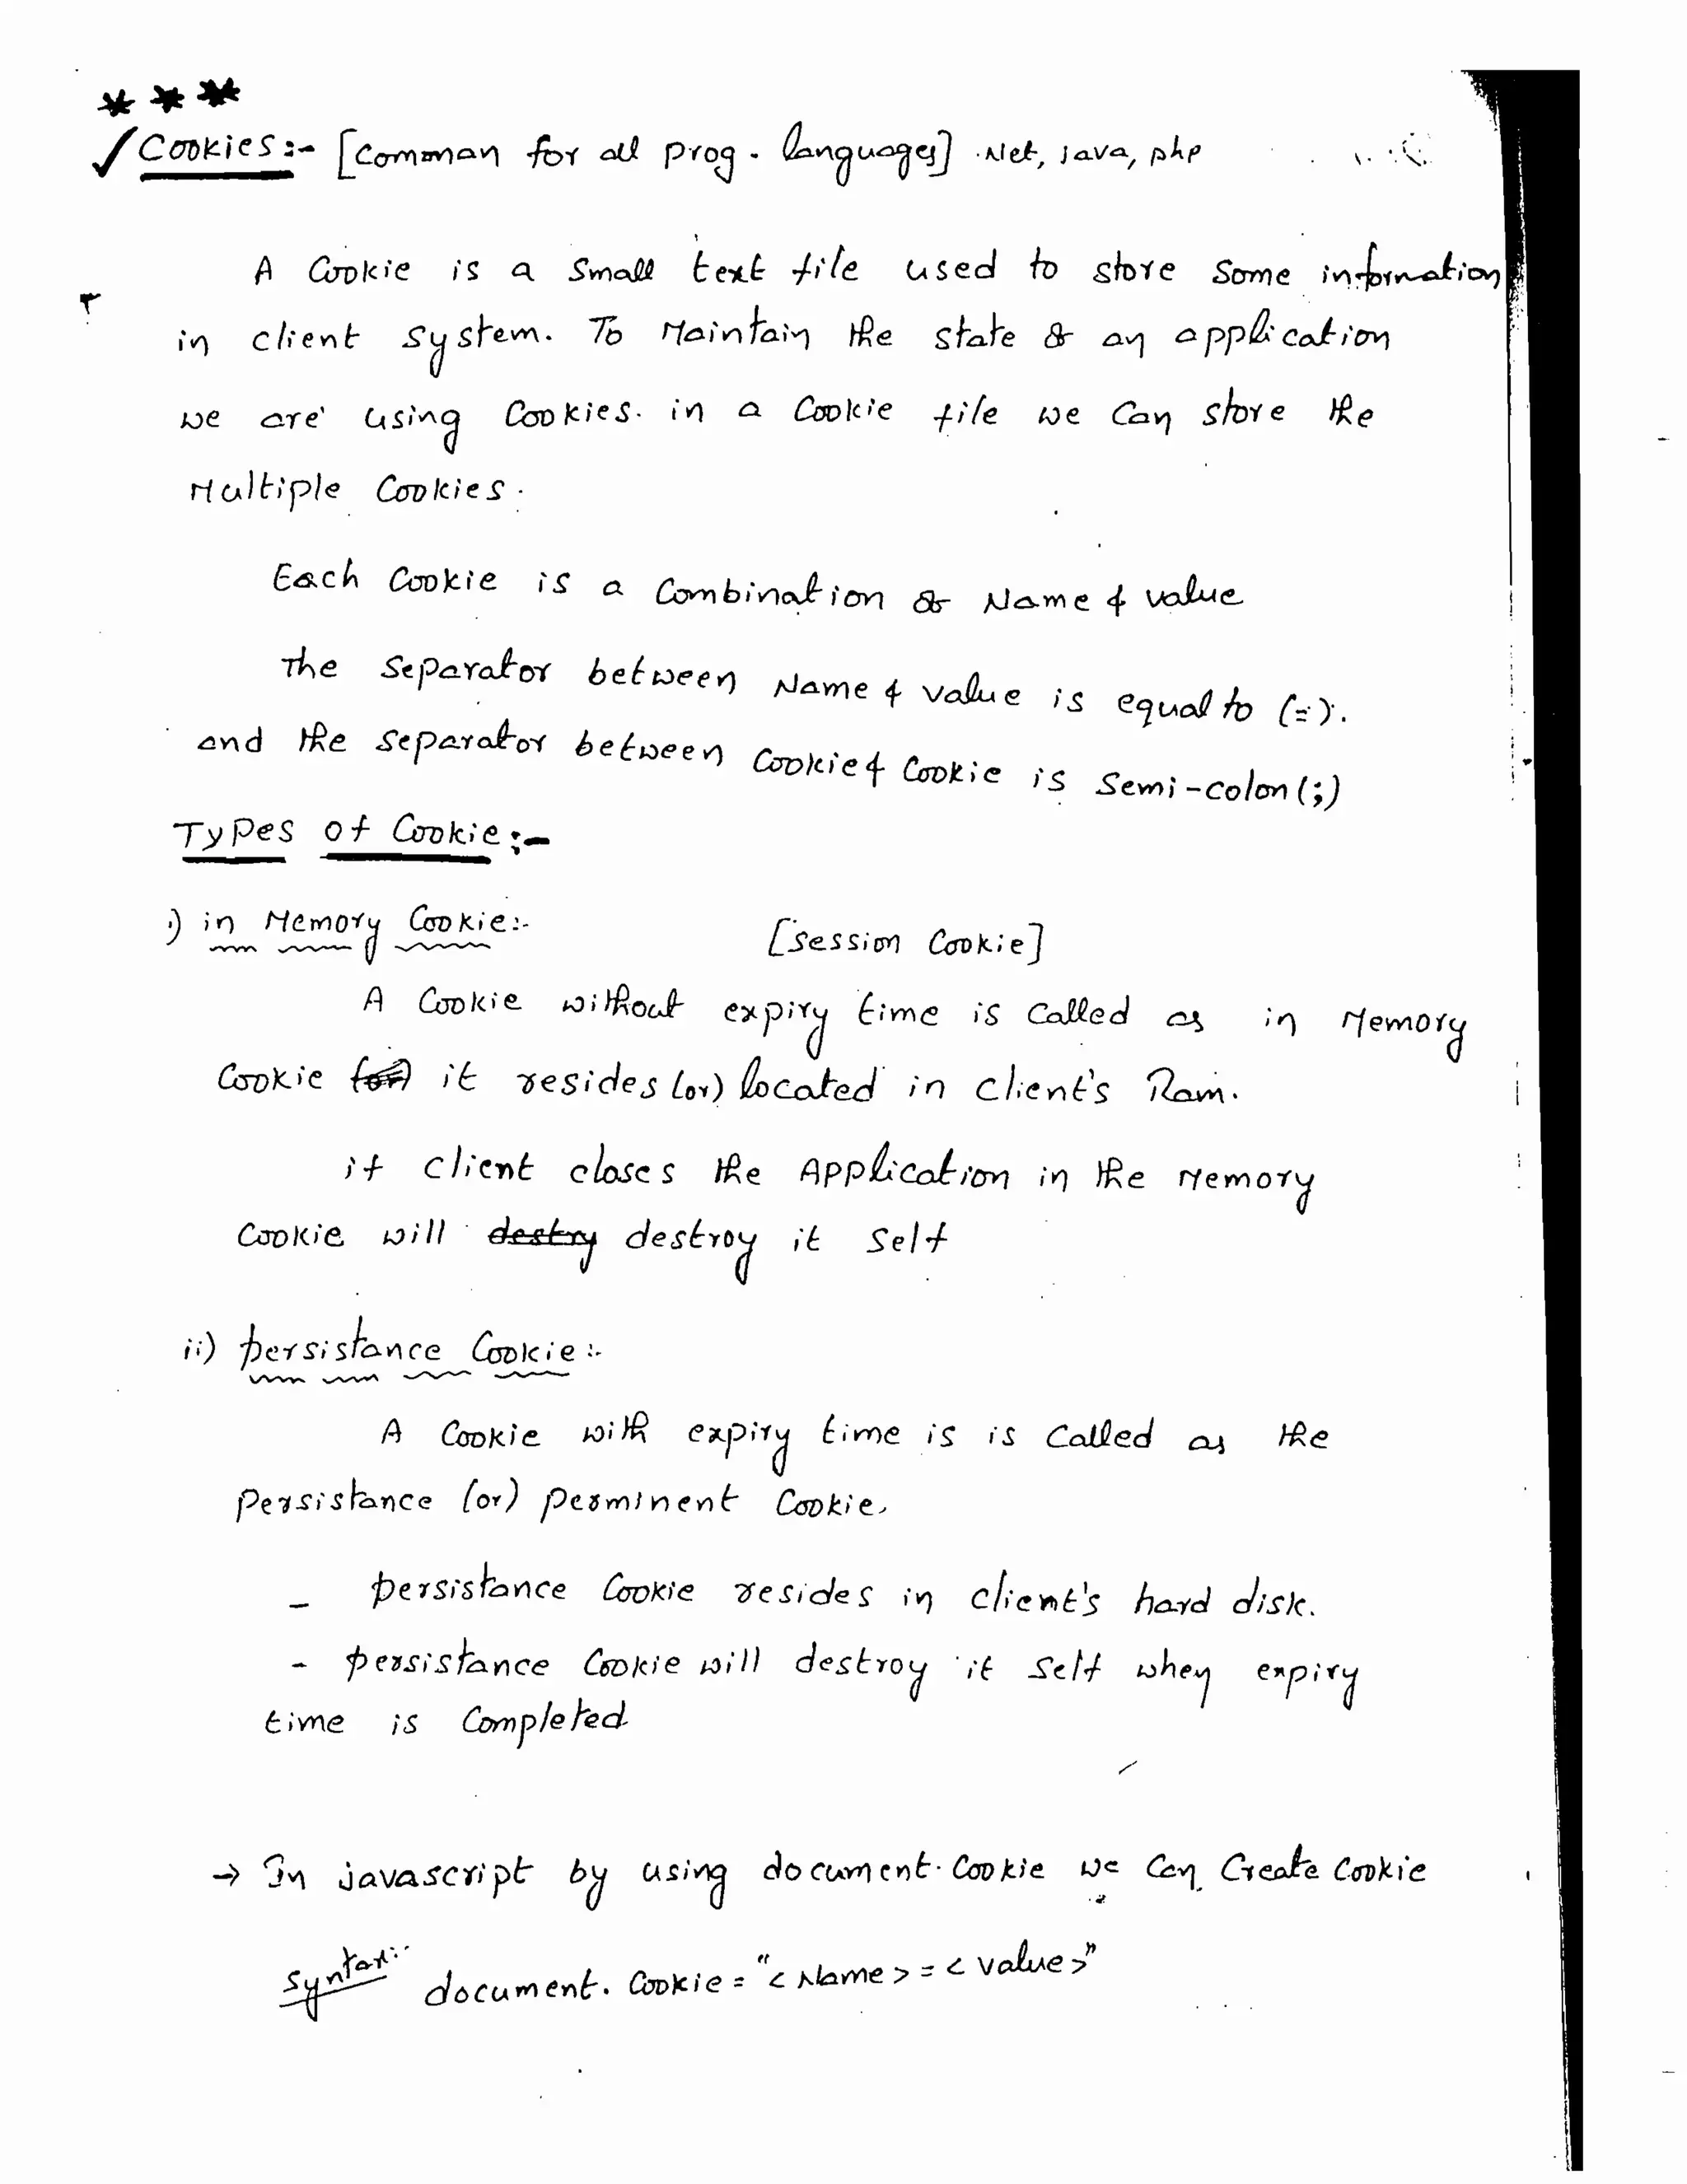 ***
✓ Cookies:- [Common for all prog. languages] .Net, Java, php
A Cookie is a small text file used to store some information
in client system. To Maintain the state of an application
we are using Cookies. in a Cookie file we can store the
Multiple Cookies.
Each Cookie is a Combination of Name & value
The Separator between Name & value is equal to (=).
and the separator between Cookie & Cookie is Semi-colon (;)
Types of Cookie:-
i) in Memory Cookie:- [Session Cookie]
A Cookie without expiry time is called as in Memory
Cookie it resides (or) located in client's Ram.
if client closes the Application in the Memory
Cookie will destry destroy it self
ii) persistance Cookie:-
A Cookie with expiry time is is Called as the
Persistance (or) perminent Cookie.
- persistance Cookie resides in client's hard disk.
- persistance Cookie will destroy it self when expiry
time is Completed
→ In javascript by using document.Cookie we can Create Cookie
Syntax:- document.Cookie = "<Name> = <value>"